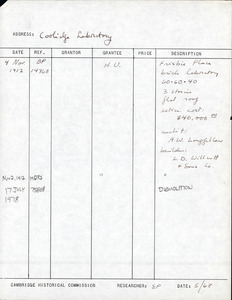 ADDRESS: Coolidge Laboratory
DATE REF. GRANTOR GRANTEE PRICE DESCRIPTION
4 Nov BP H.U. Frisbie Place
1912 14960 brick laboratory
60-60-40
3 stories
flat roof
estim cost
$40,000
archit:
A.W. Longfellow
builder:
L.D. Willcutt
& Sons Co.
Nov 2, 1912
17 July DEMOLITION
1978
CAMBRIDGE HISTORICAL COMMISSION RESEARCHER: SP DATE: 5/68